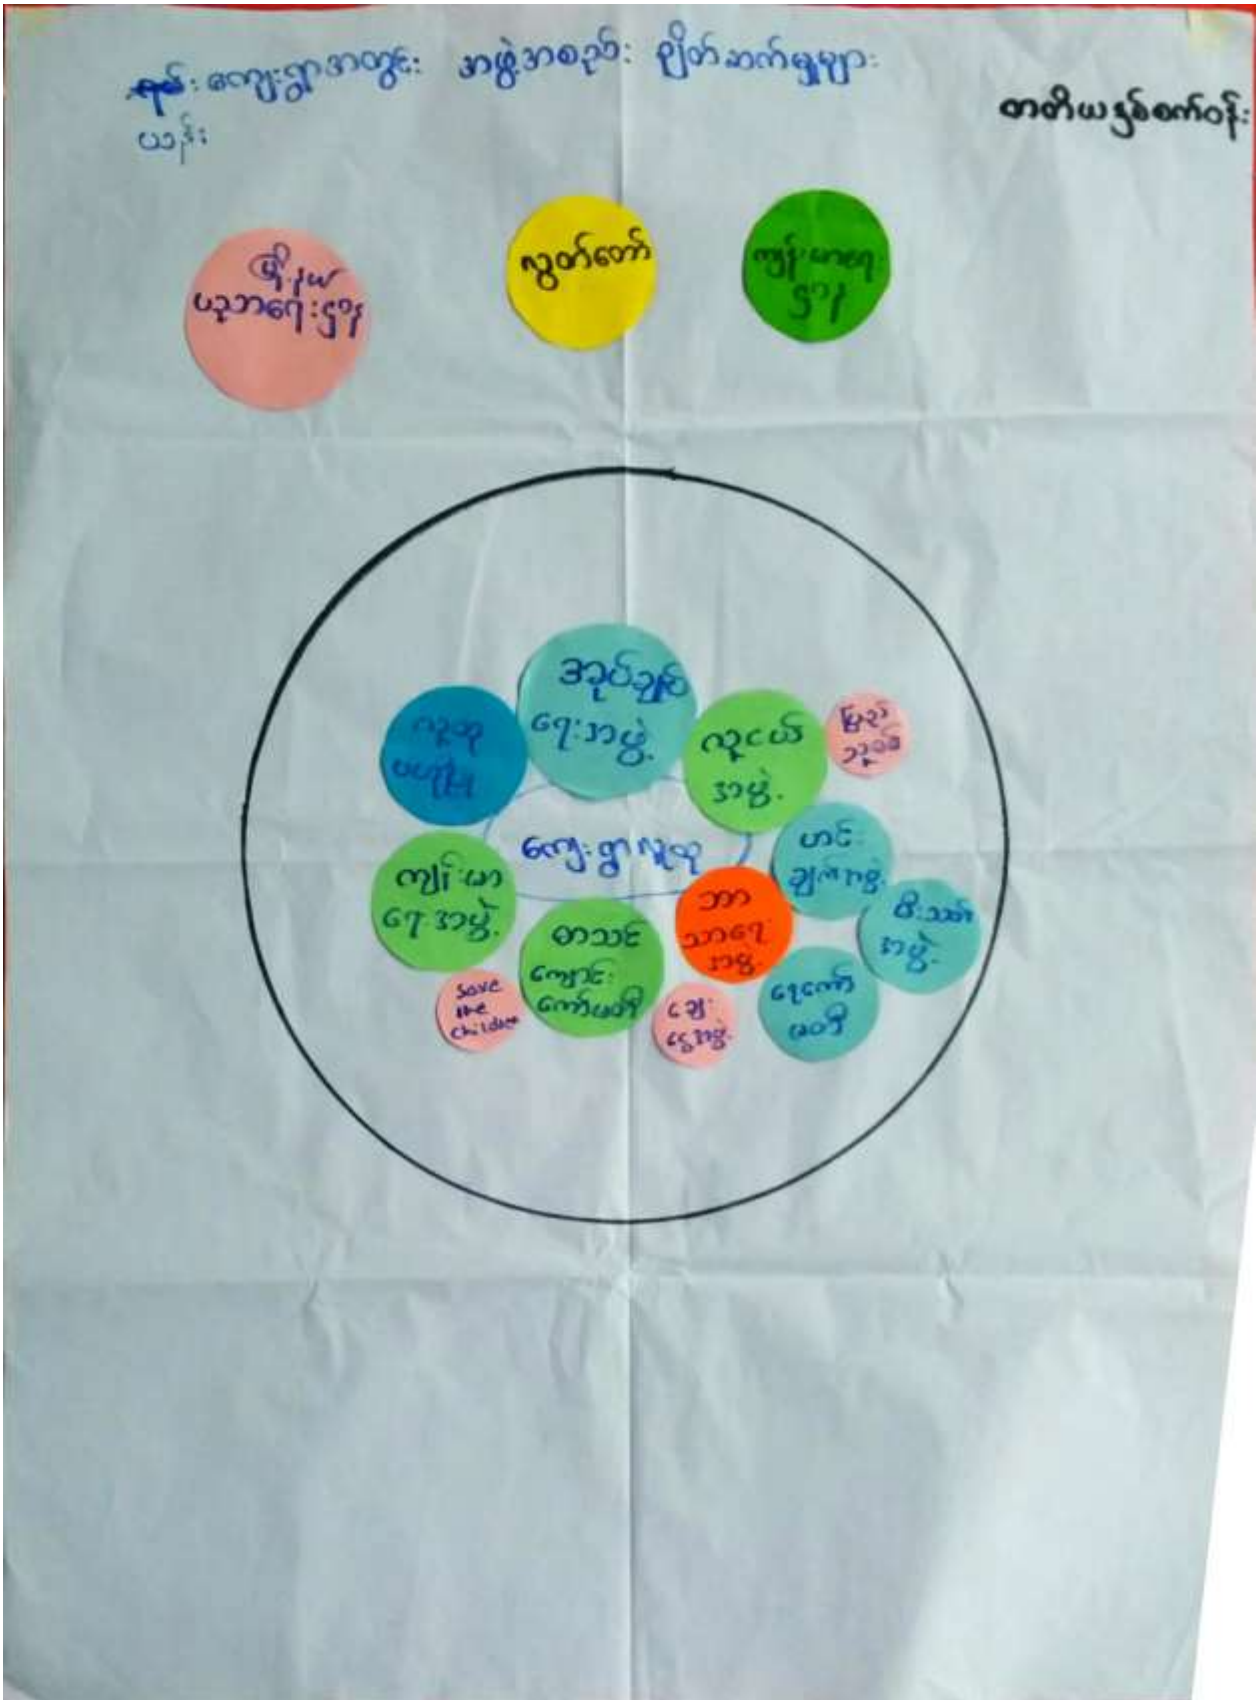 ကျေးရွာအတွင်း အဖွဲ့အစည်း ချိတ်ဆက်မှုများ
ပသန်း
တတိယနှစ်စက်ဝန်း
မြို့နယ်
ပညာရေးဌာန
လွှတ်တော်
ကျန်းမာရေး
ဌာန
အုပ်ချုပ်
ရေးအဖွဲ့
လူထု
ဗဟိုပြု
လူငယ်
အဖွဲ့
ပြည်
သူ့စစ်
ကျေးရွာလူထု
ဟင်း
ချက်အဖွဲ့
ကျန်းမာ
ရေးအဖွဲ့
ဘာ
သာရေး
အဖွဲ့
မီးသတ်
အဖွဲ့
စာသင်
ကျောင်း
ကော်မတီ
Save
the
Children
ချေး
ငွေအဖွဲ့
ရေကော်
မတီ